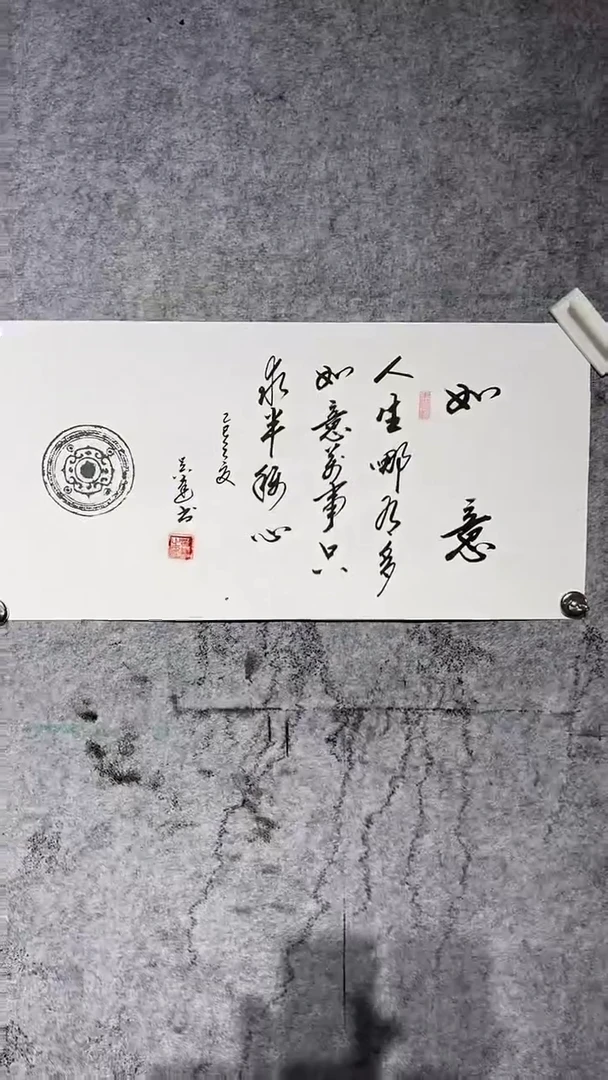 如意
人生哪有多
如意万事只
求半称心
乙巳之夏